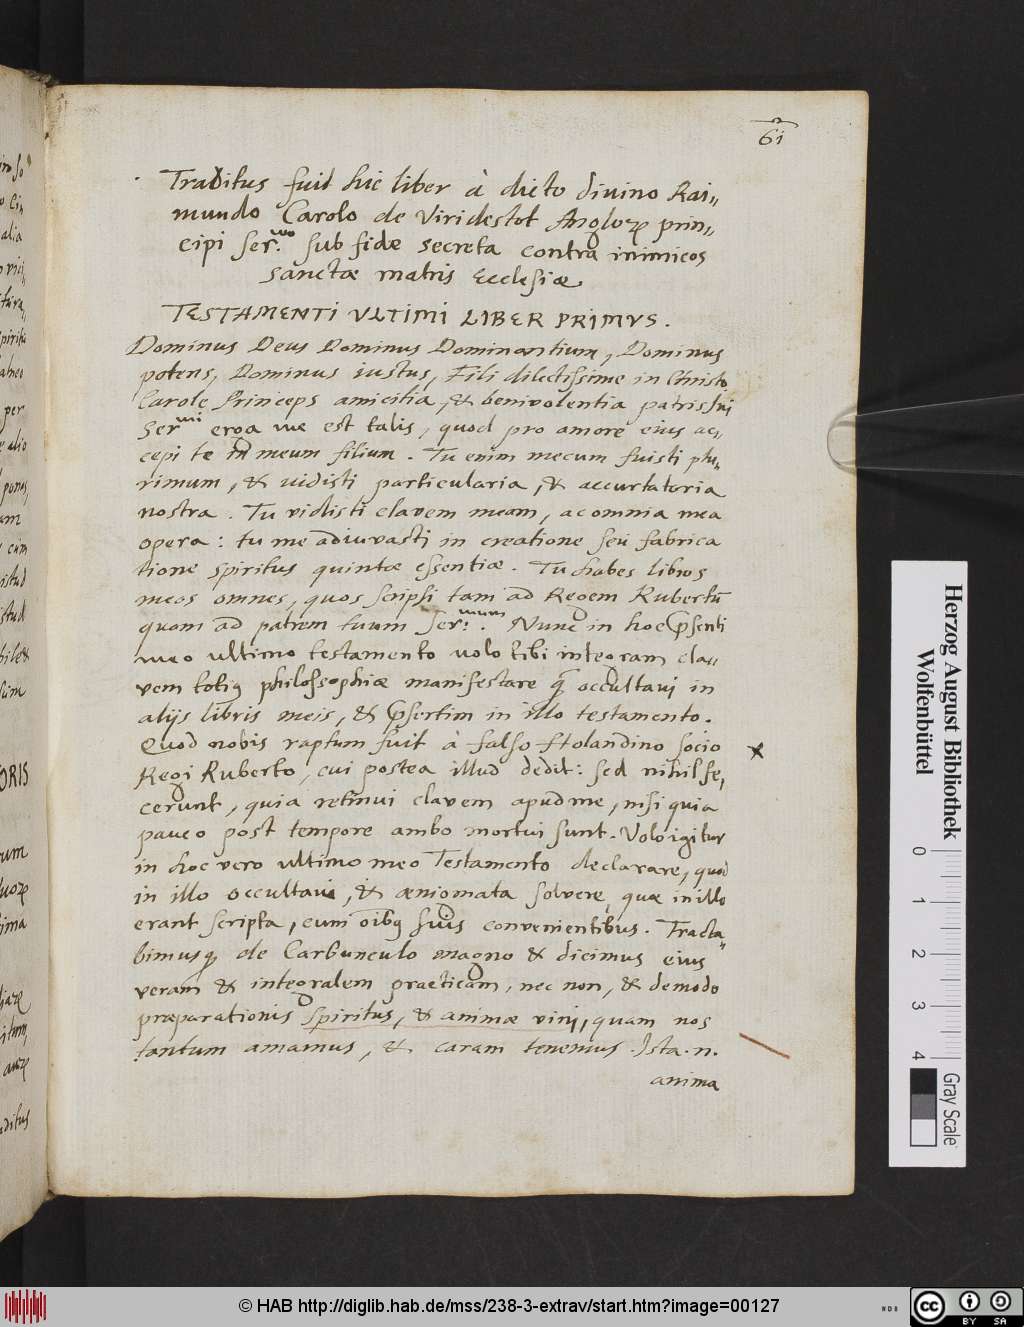 61
Traditus fuit hic liber à dicto divino Rai„
mundo Carolo de Viridestot Angloꝝ prin„
cipi Ser.mo sub fide secreta contra inimicos
sanctæ matris Ecclesiæ
TESTAMENTI VLTIMI LIBER PRIMVS.
Dominus Deus Dominus Dominantium, Dominus
potens, Dominus iustus, Fili dilectissime in Christo
Carole Princeps amicitia, & benivolentia patris sui
Sermi erga me est talis, quod pro amore eius ac„
cepi te in meum filium. Tu enim mecum fuisti plu„
rimum, & vidisti particularia, & accurtatoria
nostra. Tu vidisti clavem meam, ac omnia mea
opera: tu me adiuvasti in creatione seu fabrica
tione spiritus quintæ essentiæ. Tu habes libros
meos omnes, quos scripsi tam ad Regem Rubertū
quam ad patrem tuum Ser.mum. Nunc in hoc p̃senti
meo ultimo testamento volo tibi integram cla„
vem totiꝰ philosophiæ manifestare q̃ occultavi in
alijs libris meis, & p̃sertim in illo testamento.
Quod nobis raptum fuit à falso Holandino socio
Regi Ruberto, cui postea illud dedit: sed nihil fe„
cerunt, quia retinui clavem apud me, nisi quia
pauco post tempore ambo mortui sunt. Volo igitur
in hoc vero ultimo meo Testamento declarare, quod
in illo occultavi, & ænigmata solvere, quæ in illo
erant scripta, cum oībꝰ suis convenientibus. Tracta„
bimusqꝫ de Carbunculo magno & dicimus eius
veram & integralem practicam, nec non, & de modo
præparationis spiritus, & animæ vini, quam nos
tantum amamus, & caram tenemus. Ista .n.
anima
ORIS
Herzog August Bibliothek
Wolfenbüttel
0 1 2 3 4
Gray Scale
© HAB http://diglib.hab.de/mss/238-3-extrav/start.htm?image=00127
cc BY SA